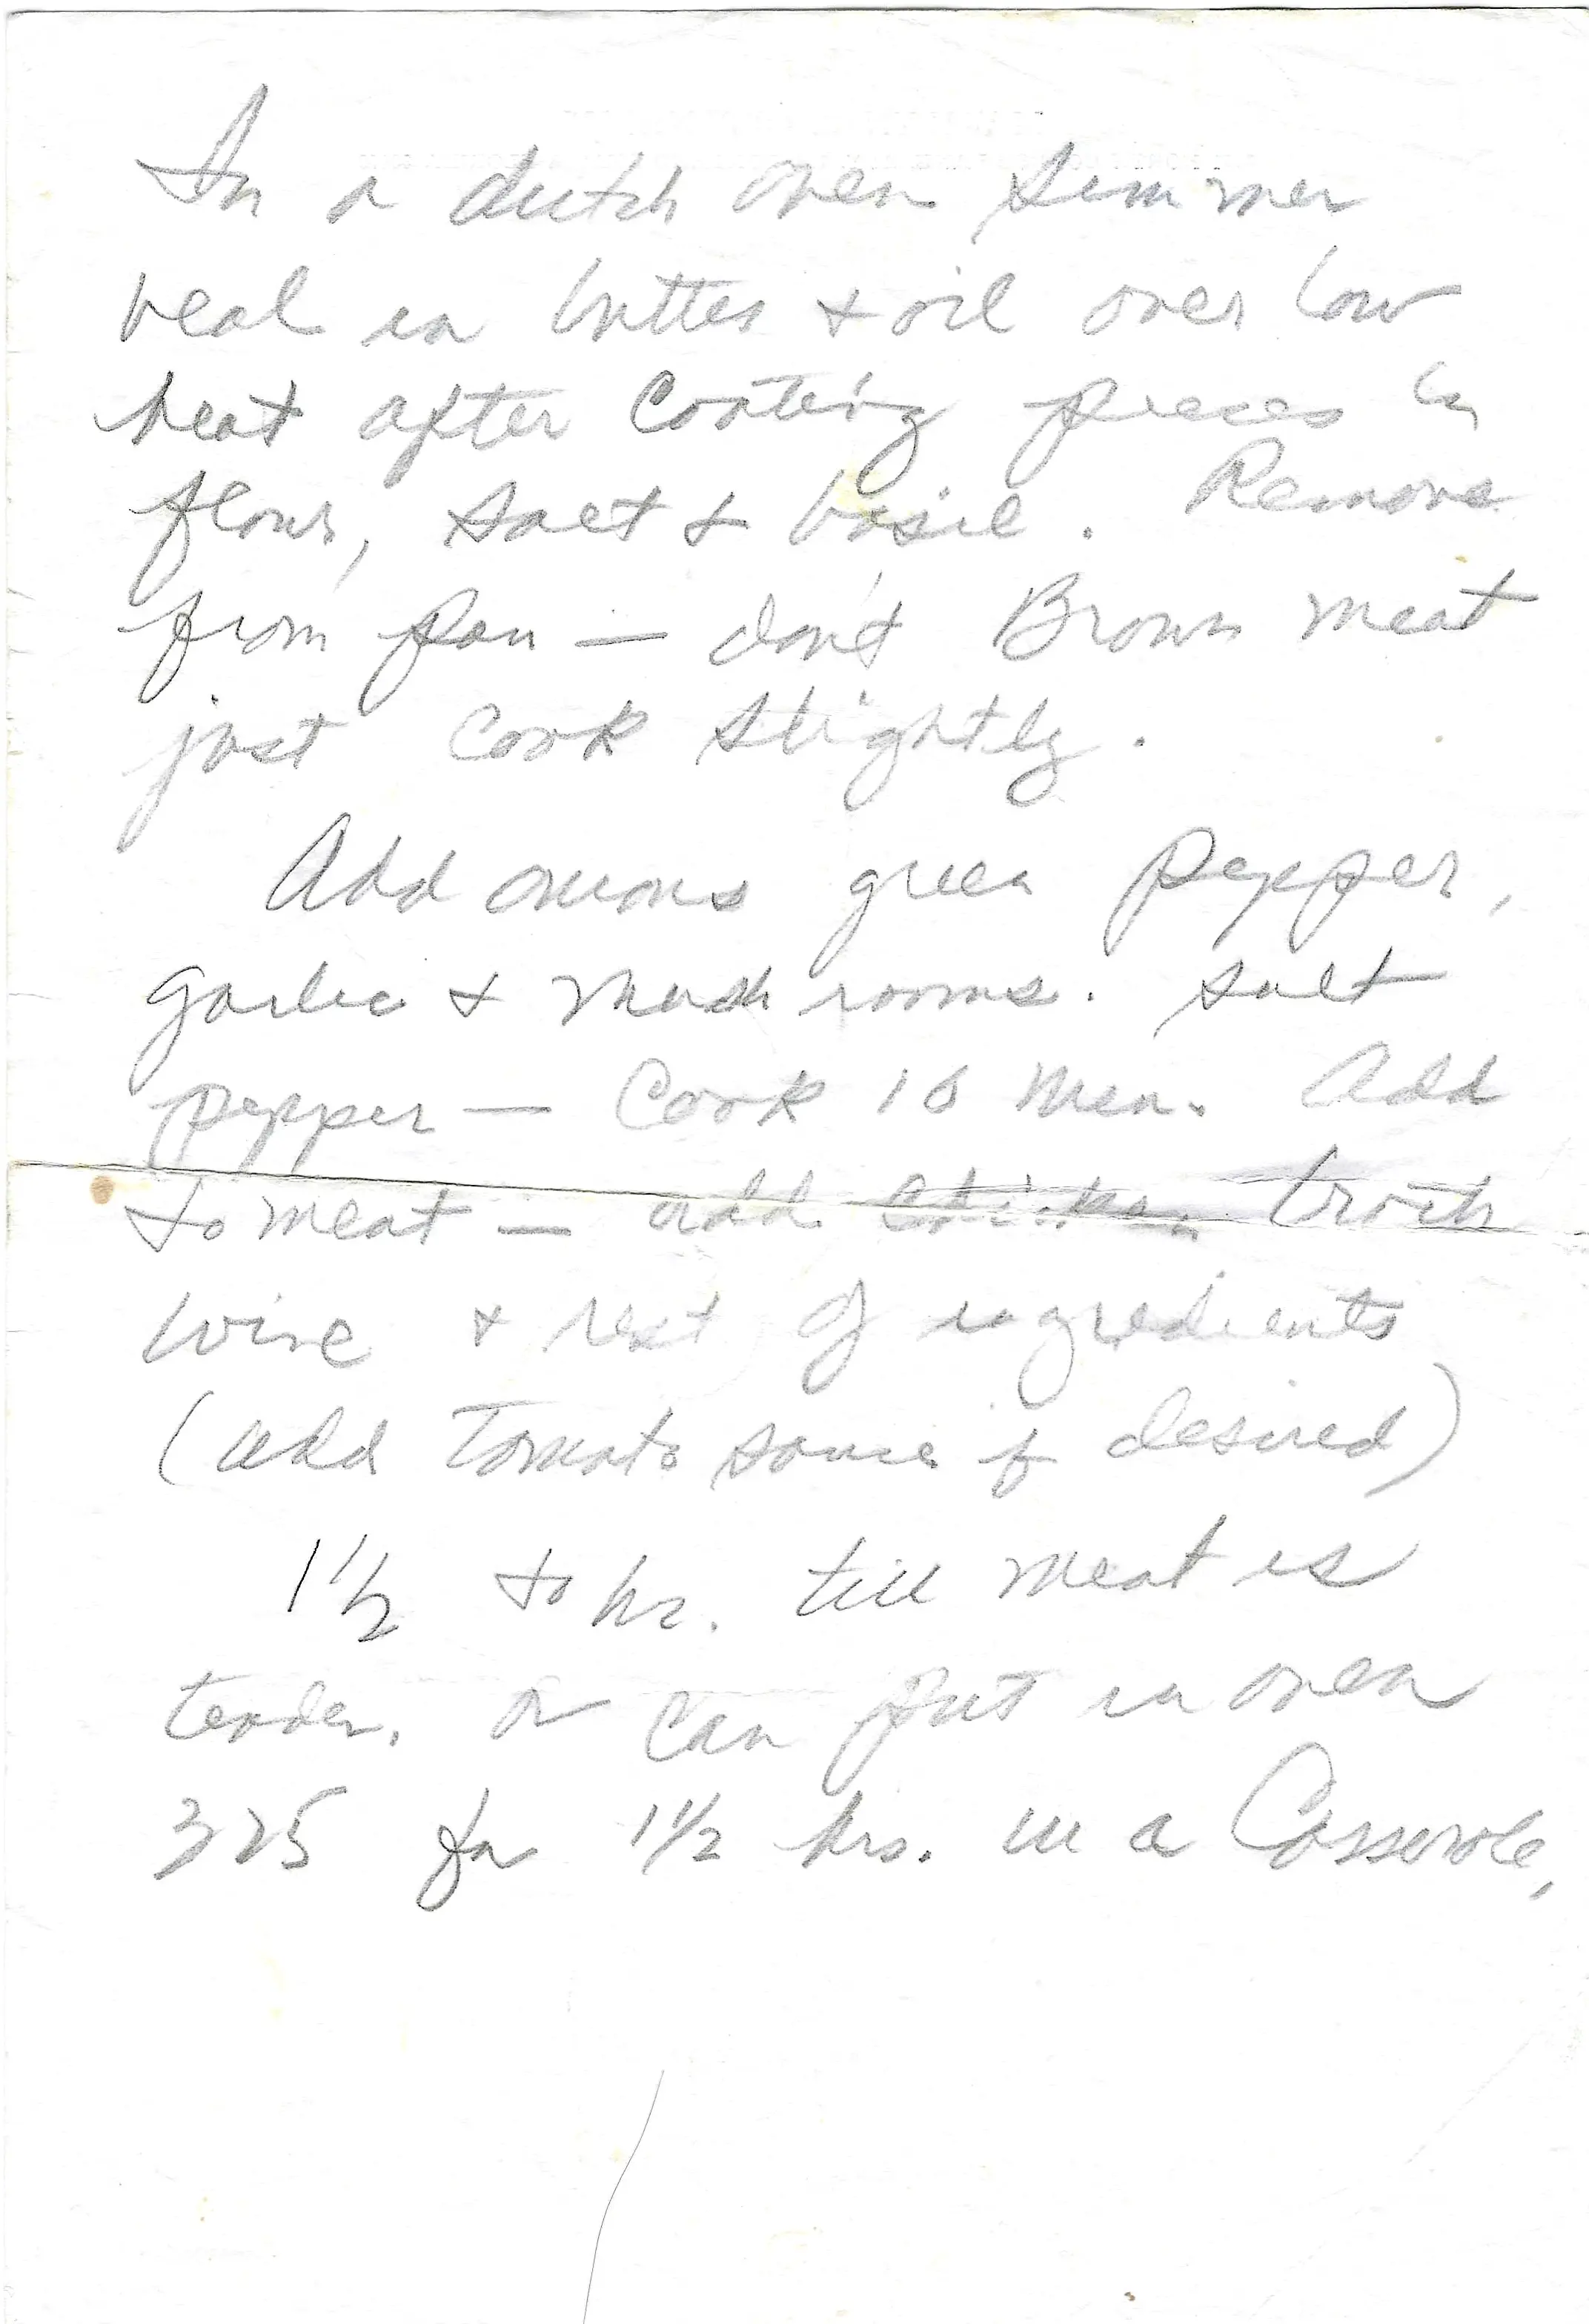 In a dutch oven simmer
veal in butter + oil over low
heat after Coating pieces in
flour, salt + basil. Remove
from pan — don't Brown meat
just Cook slightly.
Add onions green pepper,
garlic + mushrooms. salt
pepper — Cook 10 min. Add
to meat — add chicken broth
wine + rest of ingredients
(add Tomato sauce if desired)
1 1/2 to hr. till meat is
tender. or can put in oven
325 for 1 1/2 hrs. in a Casserole,